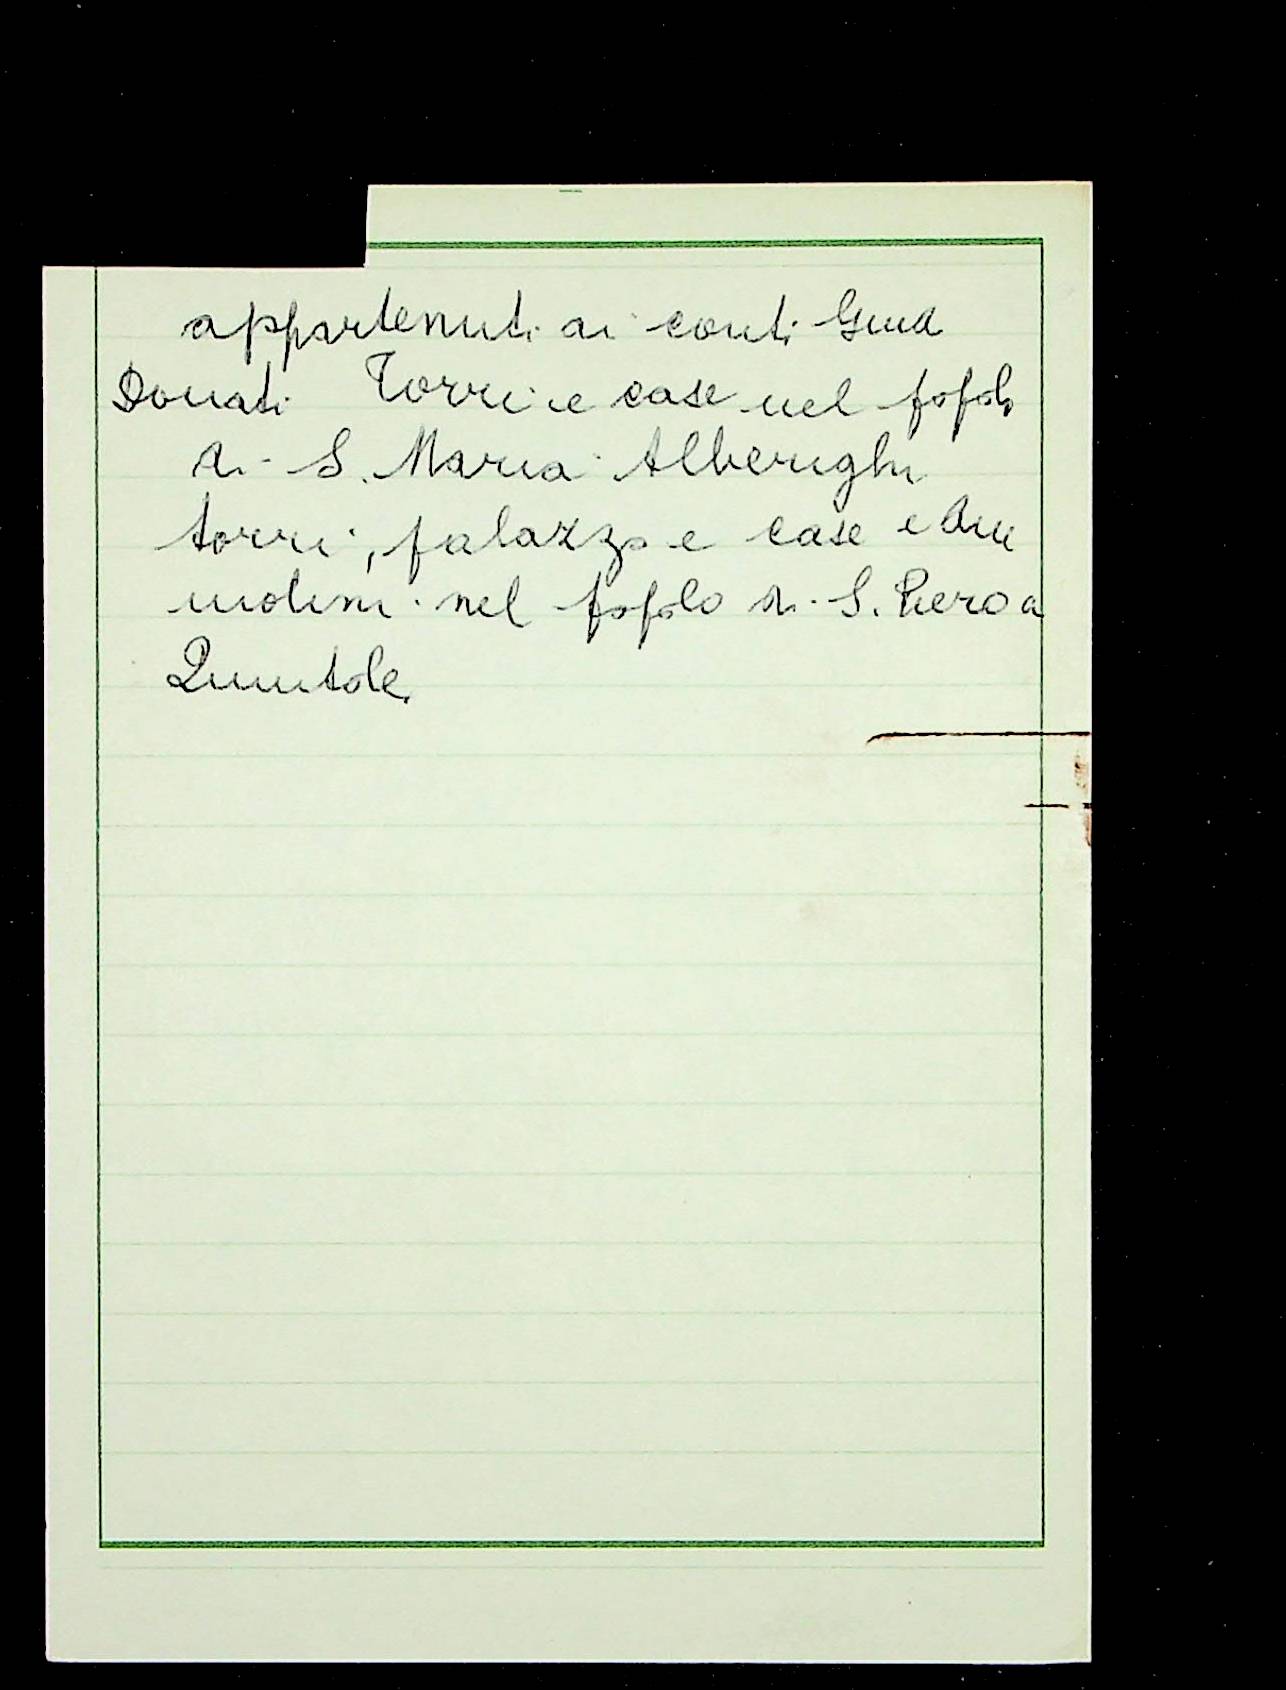 appartenuti ai conti Guid
Donati Torri e case nel popolo
di S. Maria Alberighi
torri, palazzo e case e due
molini nel popolo di S. Piero a
Quintole.